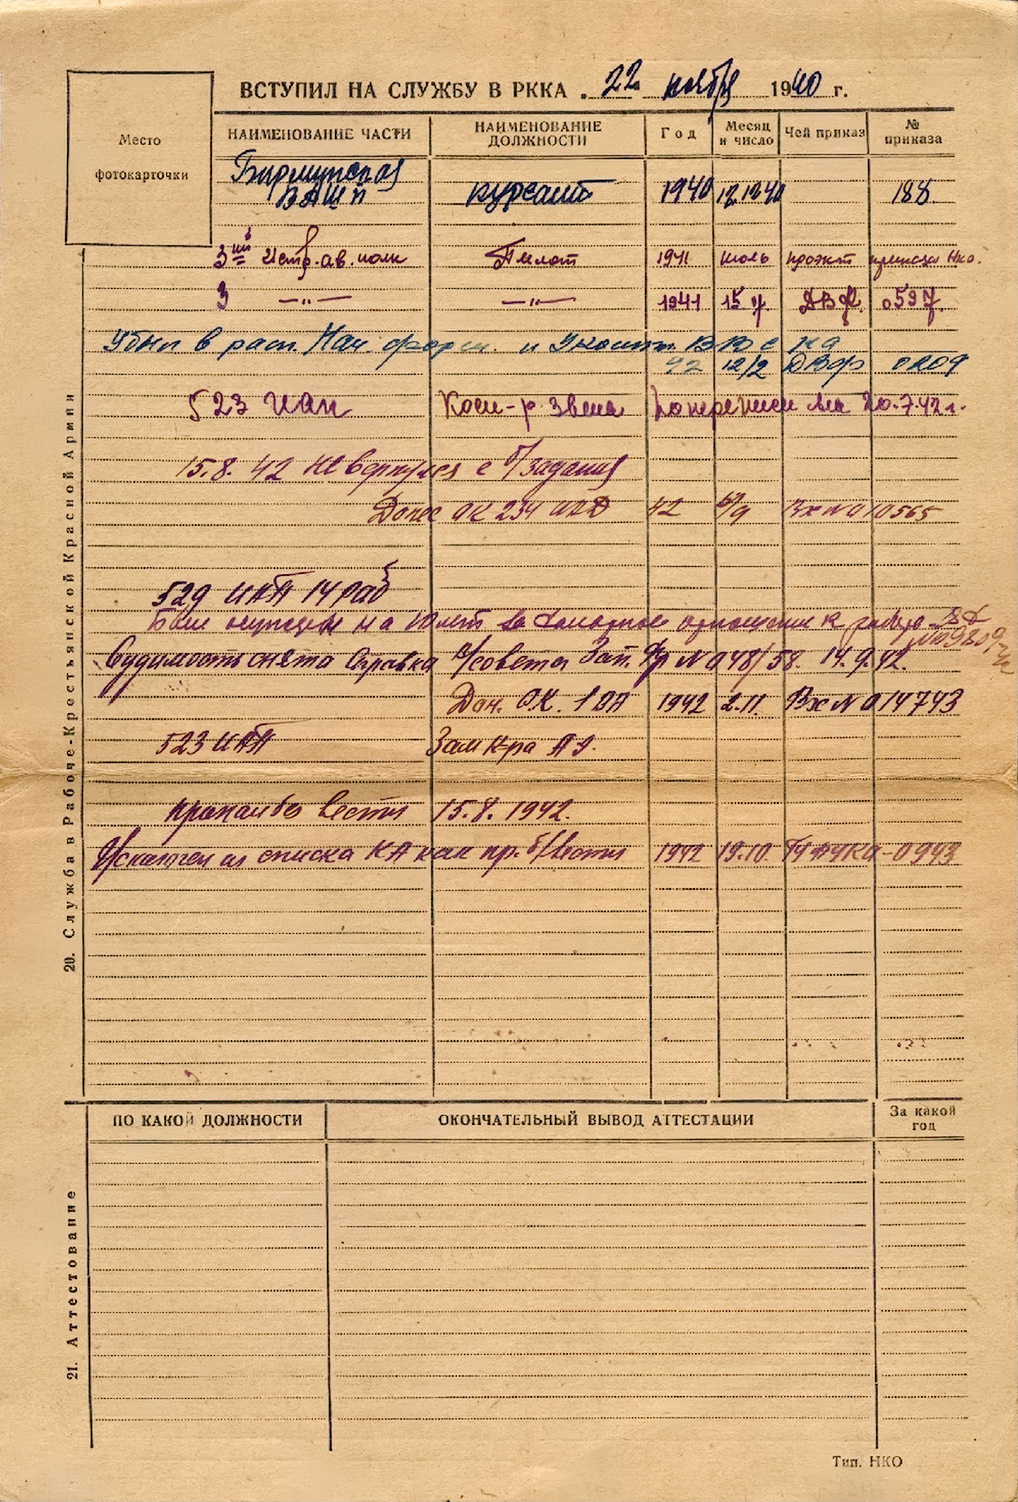 ВСТУПИЛ НА СЛУЖБУ В РККА . 22 ноября 1940 г.
Место фотокарточки
НАИМЕНОВАНИЕ ЧАСТИ НАИМЕНОВАНИЕ ДОЛЖНОСТИ Год Месяц и число Чей приказ № приказа
Бирминская
ВАШП курсант 1940 12.1940 188
3ий Истр. ав. полк Пилот 1941 июль проэкт приказа Нко.
3 —"— —"— 1941 15/7 ДВФ. 0597
Убыл в расп. Нач. форм. и
42 12/2 ДВФ 0209
523 иап Ком-р звена 20.7.42 г.
15.8.42 не вернулся с б/задания
Донес ОК 234 ИАД 42 /9 Вх № 010565
529 ИАП
на 10 лет за к
Судимость снята Справка в/совета Зап. Фр № 048/58. 14.9.42.
Дон. ОК. 1 ВА 1942 2.11. Вх № 014743
523 ИАП Зам к-ра АЭ.
пропал без вести 15.8.1942.
Исключен из списка КА как пр. б/вести 1942 19.10. ГУФУКА-0943
20. Служба в Рабоче-Крестьянской Красной Армии
ПО КАКОЙ ДОЛЖНОСТИ ОКОНЧАТЕЛЬНЫЙ ВЫВОД АТТЕСТАЦИИ За какой год
21. Аттестование
Тип. НКО